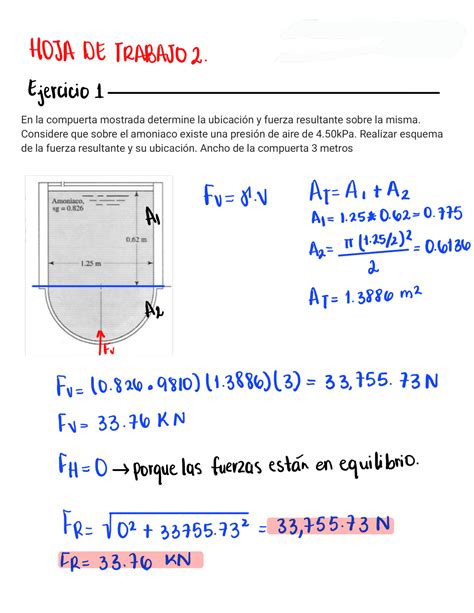 HOJA DE TRABAJO 2.
Ejercicio 1
En la compuerta mostrada determine la ubicación y fuerza resultante sobre la misma.
Considere que sobre el amoniaco existe una presión de aire de 4.50kPa. Realizar esquema
de la fuerza resultante y su ubicación. Ancho de la compuerta 3 metros
Amoniaco,
sg = 0.826
A1
0.62 m
1.25 m
A2
Fv
Fv = γ.V
AT = A1 + A2
A1 = 1.25 * 0.62 = 0.775
A2 = π (1.25/2)² / 2 = 0.6136
AT = 1.3886 m²
Fv = (0.826 • 9810) (1.3886) (3) = 33,755.73 N
Fv = 33.76 KN
FH = 0 → porque las fuerzas están en equilibrio.
FR = √0² + 33755.73² = 33,755.73 N
FR = 33.76 KN